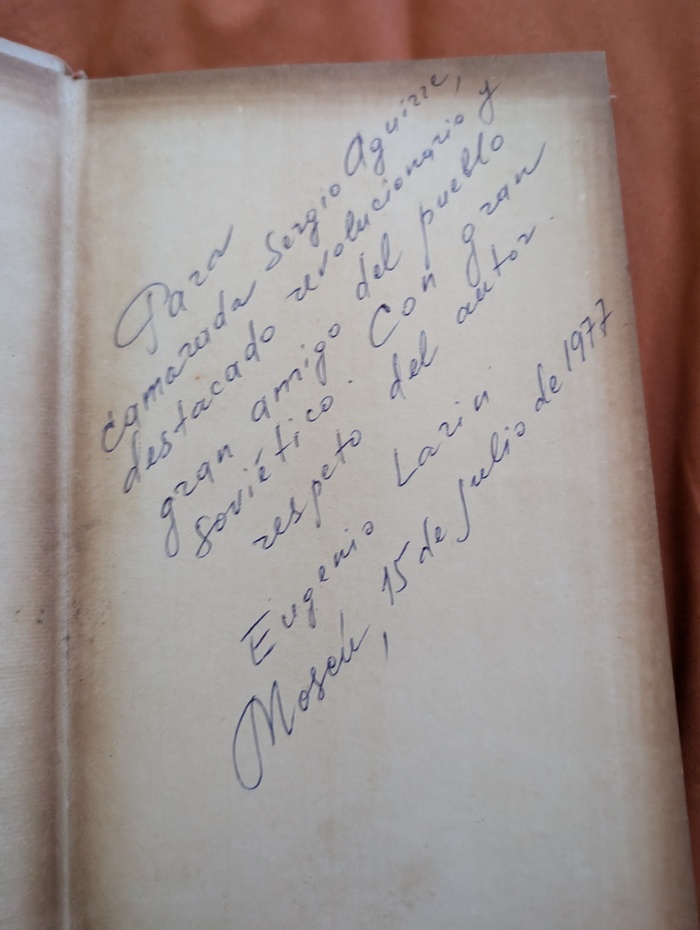 Para
camarada Sergio Aguirre,
destacado revolucionario y
gran amigo del pueblo
soviético. Con gran
respeto del autor.
Eugenio Larin
Moscú, 15 de julio de 1977